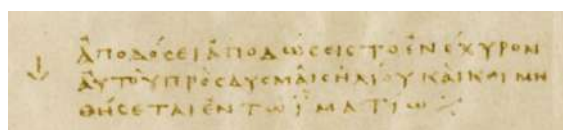 ἀποδόσει ἀποδώσεις τὸ ἐνέχυρον
ἀυτοῦ πρὸς δυσμαῖς ἡλίου καὶ κοιμη
θήσεται ἐν τῶ ἱματίω